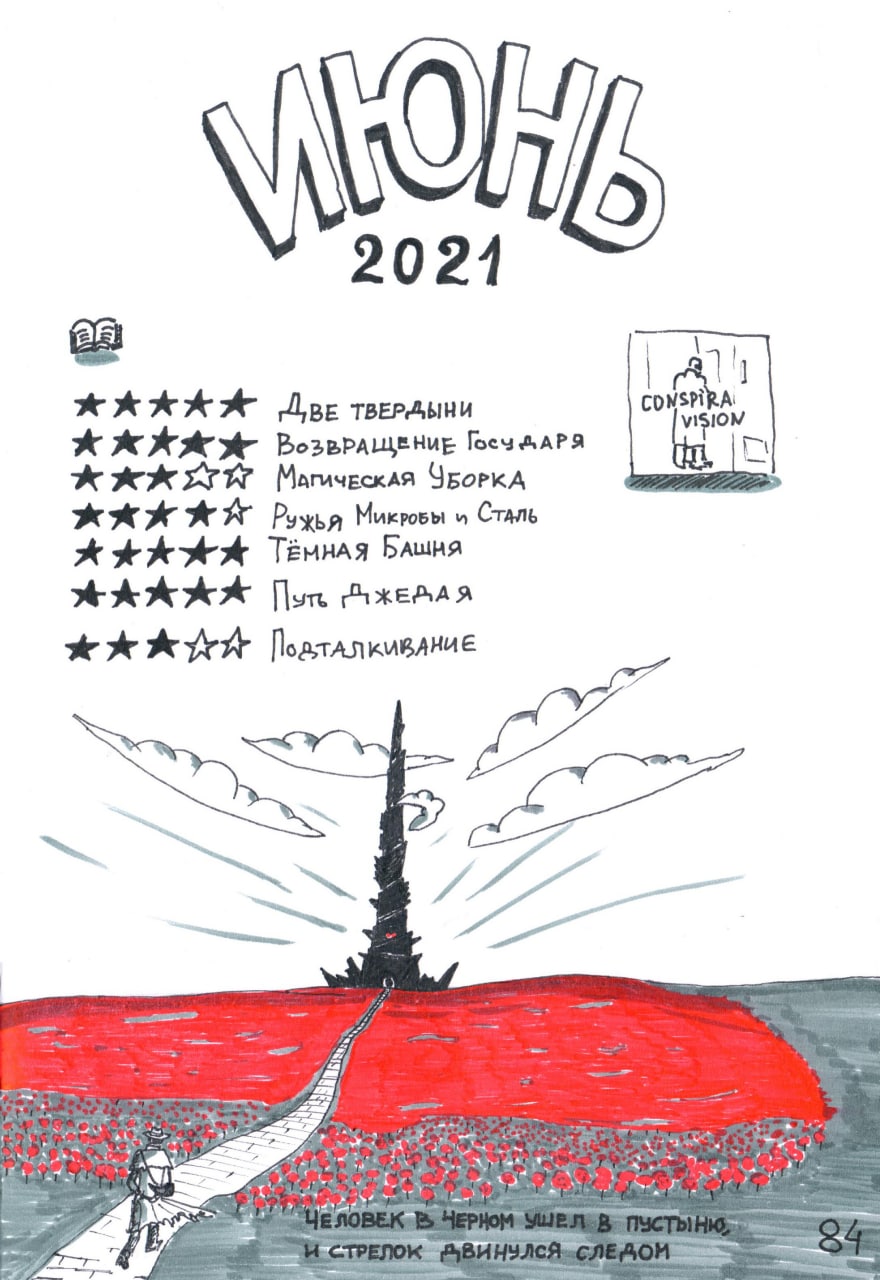 ИЮНЬ
2021
Две твердыни
Возвращение Государя
Магическая Уборка
Ружья Микробы и Сталь
Тёмная Башня
Путь Джедая
Подталкивание
CONSPIRA
VISION
Человек в черном ушел в пустыню,
и стрелок двинулся следом
84